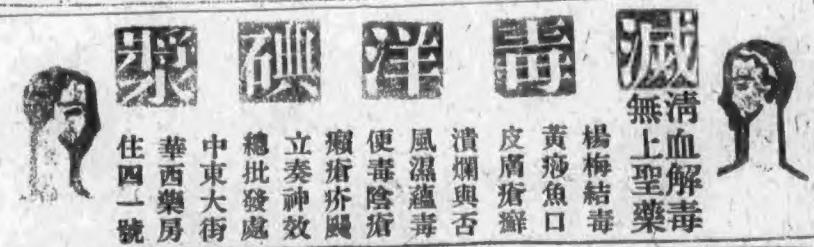 滅毒洋碘漿
清血解毒
無上聖藥
楊梅結毒
黃痧魚口
皮膚瘡癬
潰爛與否
風濕蘊毒
便毒陰瘡
癩瘡疥䘌
立奏神效
總批發處
中東大街
華西藥房
住四一號